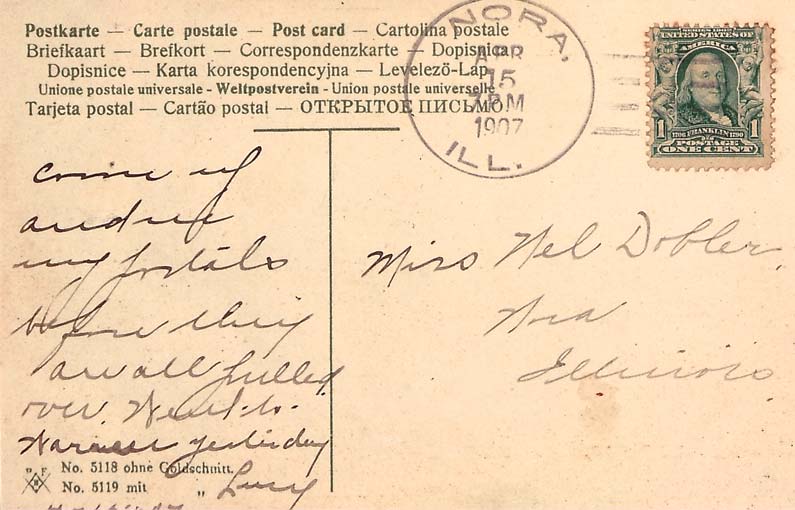 Postkarte — Carte postale — Post card — Cartolina postale
Briefkaart — Brefkort — Correspondenzkarte — Dopisnica
Dopisnice — Karta korespondencyjna — Levelező-Lap
Unione postale universale - Weltpostverein - Union postale universelle
Tarjeta postal — Cartão postal — ОТКРЫТОЕ ПИСЬМО
NORA,
APR
15
7 PM
1907
ILL.
SERIES 1902
UNITED STATES OF
AMERICA
1706 FRANKLIN 1790
1 1
POSTAGE
ONE CENT
come up
and see
my postals
before they
are all pulled
over. Went to
Warren yesterday
Lucy
Miss Nel Dobler,
Nora
Illinois
No. 5118 ohne Goldschnitt.
No. 5119 mit „